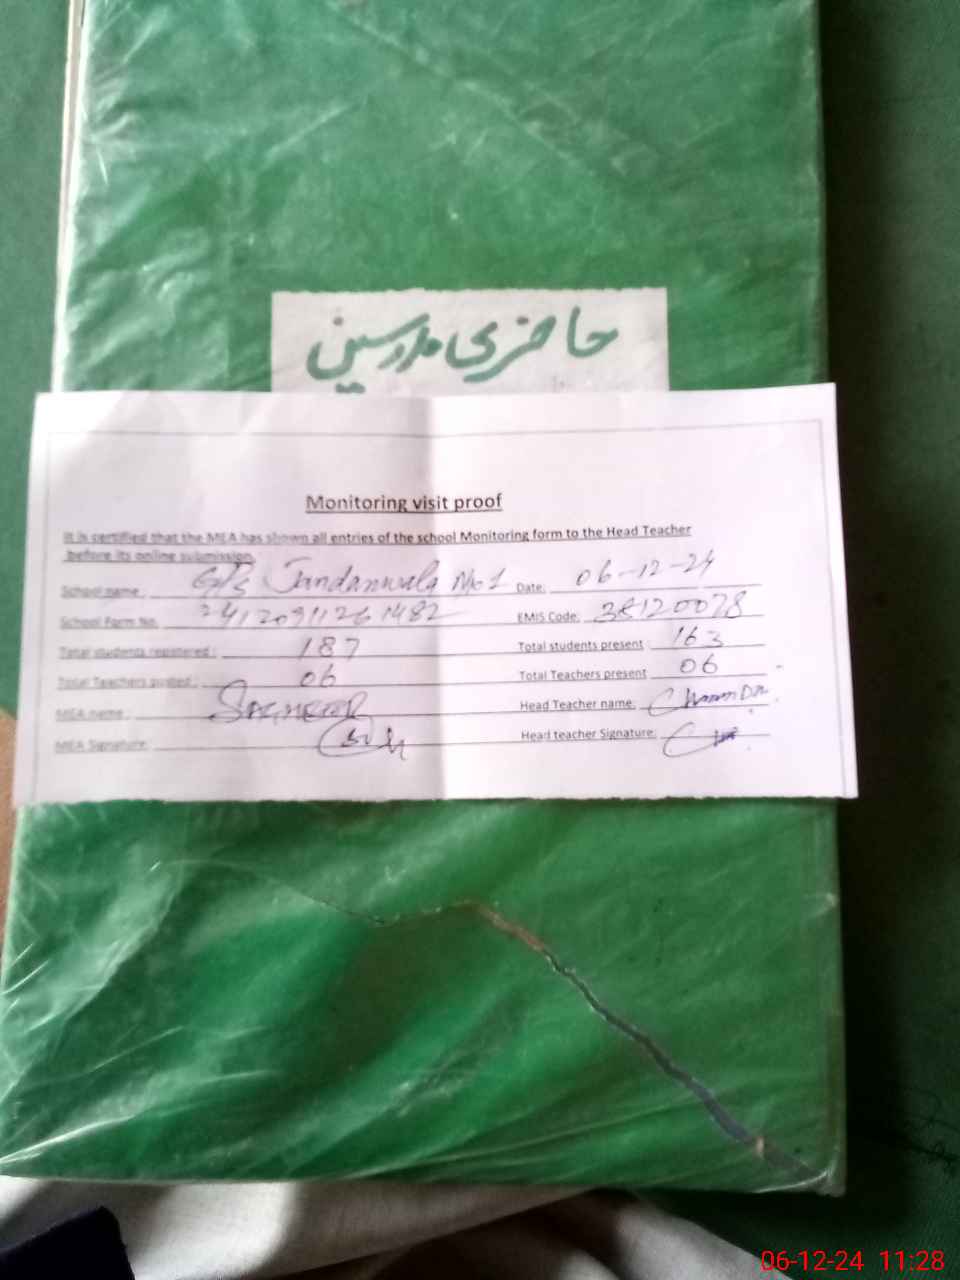 حاضری مدرسین
Monitoring visit proof
It is certified that the MEA has shown all entries of the school Monitoring form to the Head Teacher
before its online submission.
School name: GPS Jandanwala No 1 Date: 06-12-24
School Form No. EMIS Code: 38120078
Total students registered: 187 Total students present: 163
Total Teachers posted: 06 Total Teachers present 06
MEA name: Head Teacher name:
MEA Signature: Head teacher Signature:
06-12-24 11:28